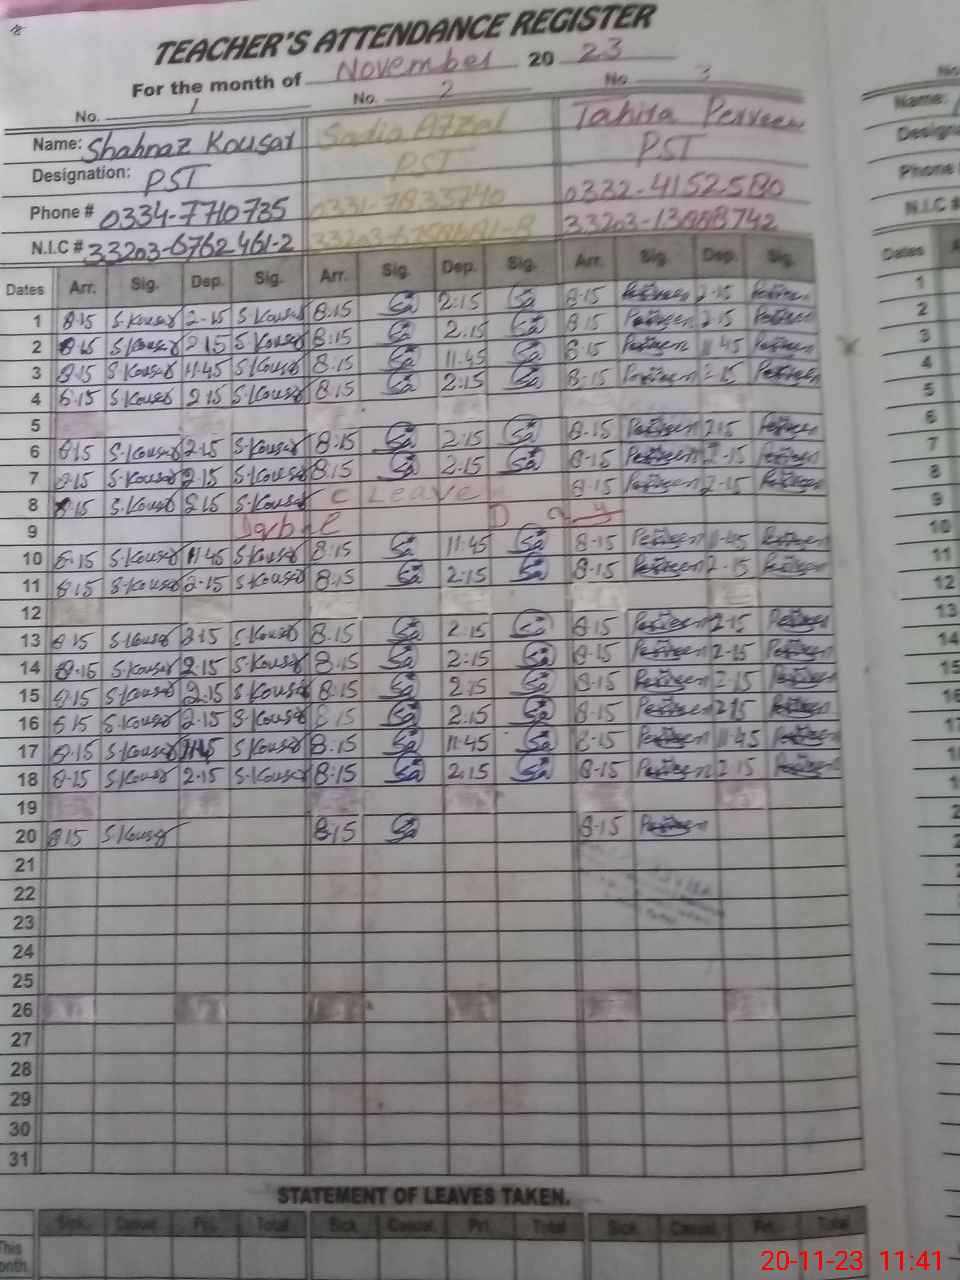 TEACHER'S ATTENDANCE REGISTER
For the month of November 20 23
No. 1 No. 2 No. 3
Name: Shahnaz Kousar Sadia Afzal Tahira Perveen
Designation: PST PST PST
Phone # 0334-7710735 0331-7833740 0332-4152580
N.I.C # 33203-6762461-2
Dates Arr. Sig. Dep. Sig. Arr. Sig. Dep. Sig. Arr. Sig. Dep. Sig.
1 8.15 S.Kousar 2-15 S.Kousar 8.15 Sa 2:15 Sa 8-15 Perveen 2-15 Perveen
2 8.15 S.Kousar 2.15 S.Kousar 8:15 Sa 2.15 Sa 8.15 Perveen 2.15 Perveen
3 8.15 S.Kousar 11.45 S.Kousar 8:15 Sa 11.45 Sa 8-15 Perveen 11.45 Perveen
4 8.15 S.Kousar 2.15 S.Kousar 8.15 Sa 2:15 Sa 8-15 Perveen 2-15 Perveen
5
6 8.15 S.Kousar 2.15 S.Kousar 8:15 Sa 2:15 Sa 8-15 Perveen 2.15 Perveen
7 8.15 S.Kousar 2.15 S.Kousar 8.15 Sa 2.15 Sa 8-15 Perveen 2-15 Perveen
8 8.15 S.Kousar 2.15 S.Kousar C Leave 8.15 Perveen 2-15 Perveen
9 Iqbal Day
10 8.15 S.Kousar 11.45 S.Kousar 8:15 Sa 11:45 Sa 8-15 Perveen 11-45 Perveen
11 8.15 S.Kousar 2-15 S.Kousar 8.15 Sa 2:15 Sa 8-15 Perveen 2-15 Perveen
12
13 8.15 S.Kousar 2.15 S.Kousar 8.15 Sa 2.15 Sa 8-15 Perveen 2-15 Perveen
14 8.15 S.Kousar 2.15 S.Kousar 8.15 Sa 2:15 Sa 8-15 Perveen 2-15 Perveen
15 8.15 S.Kousar 2.15 S.Kousar 8:15 Sa 2:15 Sa 8.15 Perveen 2-15 Perveen
16 8.15 S.Kousar 2.15 S.Kousar 8.15 Sa 2.15 Sa 8-15 Perveen 2.15 Perveen
17 8.15 S.Kousar 11.45 S.Kousar 8.15 Sa 11.45 Sa 8-15 Perveen 11-45 Perveen
18 8.15 S.Kousar 2.15 S.Kousar 8.15 Sa 2.15 Sa 8-15 Perveen 2-15 Perveen
19
20 8.15 S.Kousar 8.15 Sa 8-15 Perveen
21
22
23
24
25
26
27
28
29
30
31
STATEMENT OF LEAVES TAKEN.
Sick. Casual. Pri. Total Sick Casual. Pri. Total Sick Casual. Pri. Total
This
20-11-23 11:41
Name:
Phone
N.I.C #
Dates
1
2
3
4
5
6
7
8
9
10
11
12
13
14
15